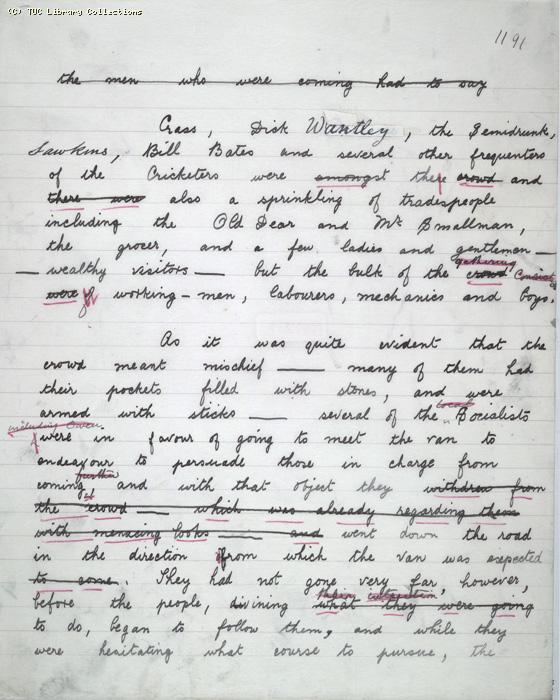 (C) TUC Library Collections
1191
the men who were coming had to say
Crass, Dick Wantley, the Semidrunk,
Sawkins, Bill Bates and several other frequenters
of the Cricketers were amongst there crowd and
there were also a sprinkling of tradespeople
including the Old Dear and Mr Smallman,
the grocer, and a few ladies and gentlemen —
— wealthy visitors — but the bulk of the crowd gathering consisted
were of working-men, labourers, mechanics and boys.
As it was quite evident that the
crowd meant mischief — many of them had
their pockets filled with stones, and were
armed with sticks — several of the local Socialists
including Owen
were in favour of going to meet the van to
endeavour to persuade those in charge from
coming further, and with that object they withdrew from
the crowd — which was already regarding them
with menacing looks — and went down the road
in the direction from which the van was expected
to come. They had not gone very far, however,
before the people, divining what they were going their intention
to do, began to follow them, and while they
were hesitating what course to pursue, the